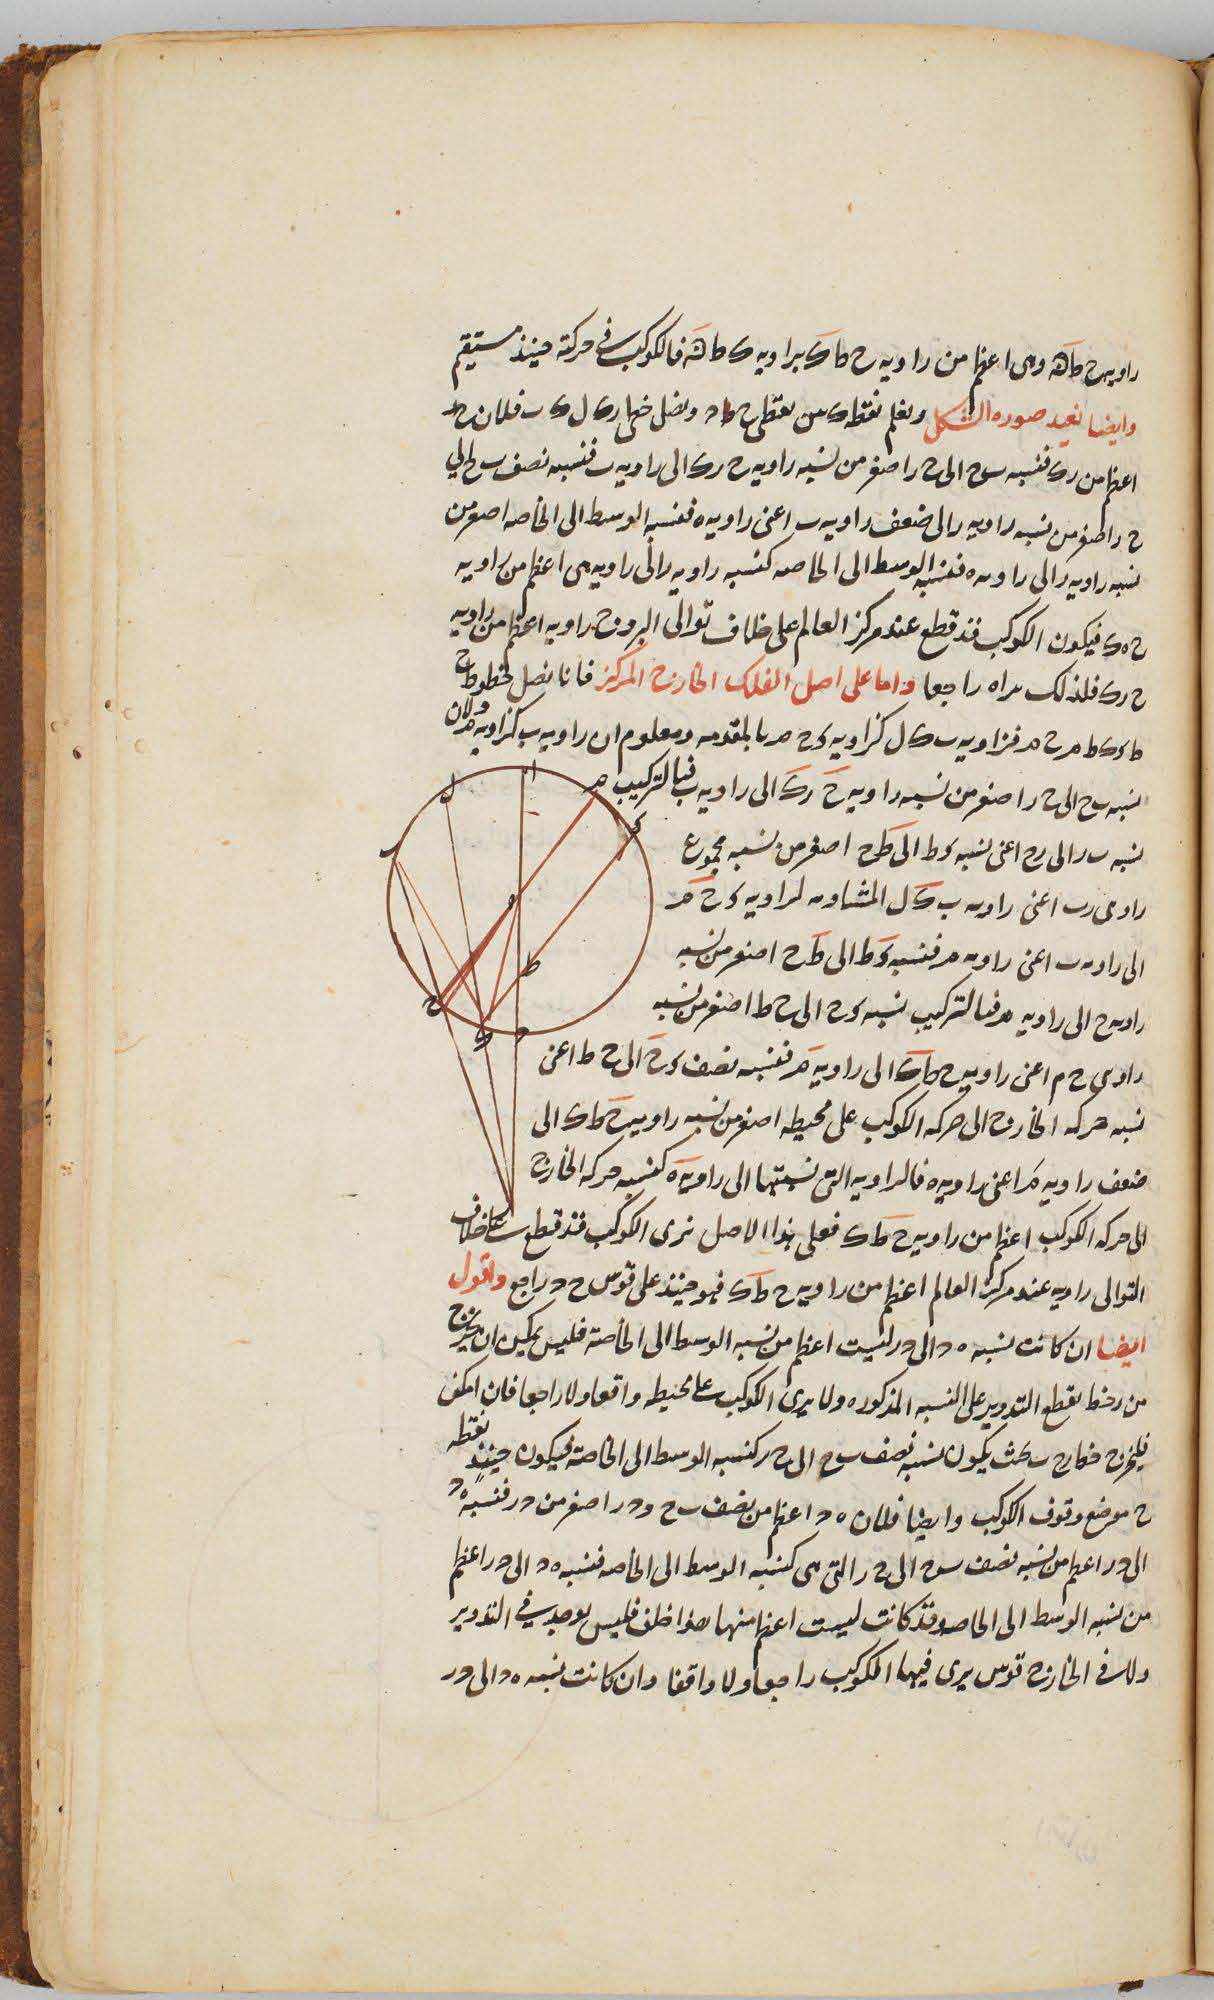 زاوية ح ط ه وهى اعظم من زاوية ح ط ك بزاوية ك ط ه فالكوكب فى حركته حينئذ مستقيم
وايضا نعيد صورة الشكل ونعلم نقطة ك بين نقطتى ح د ونصل خطى ر ك ل ك ب فلان ح ر
اعظم من ر ك فنسبة ب ح الى ح ر اصغر من نسبة زاوية ح ر ك الى زاوية ب فنسبة نصف ب ح الى
ح ر اصغر من نسبة زاوية ر الى ضعف زاوية ب اعنى زاوية ه فنسبة الوسط الى الخاصه اصغر من
نسبة زاوية ر الى زاوية ه فنسبة الوسط الى الخاصه كنسبة زاوية الى زاوية هى اعظم من زاوية
ح ه ك فيكون الكوكب قد قطع عند مركز العالم على خلاف توالى البروج زاوية اعظم من زاوية
ح ر ك فلذلك نراه راجعا واما على اصل الفلك الخارج المركز فانا نصل خطوط ح
ط و ك ط م ح م فزاوية ب ك ل كزاوية و ح م بالمقدمه ومعلوم ان زاوية ب كزاوية م ولان
نسبة ب ح الى ح ر اصغر من نسبة زاوية ح ر ك الى زاوية ب فبالتركيب
نسبة ب ر الى ر ح اعنى نسبة و ط الى ط ح اصغر من نسبة مجموع
زاويتى ر ب اعنى زاوية ب ك ل المساوية لزاوية و ح م
الى زاوية ب اعنى زاوية م فنسبة و ط الى ط ح اصغر من نسبة
زاوية ح الى زاوية م فبالتركيب نسبة و ح الى ح ط اصغر من نسبة
زاويتى ح م اعنى زاوية ح ط ك الى زاوية م فنسبة نصف و ح الى ح ط اعنى
نسبة حركة الخارج الى حركة الكوكب على محيطه اصغر من نسبة زاوية ح ط ك الى
ضعف زاوية م اعنى زاوية ه فالزاوية التى نسبتها الى زاوية ه كنسبة حركة الخارج
الى حركة الكوكب اعظم من زاوية ح ط ك فعلى هذا الاصل نرى الكوكب قد قطع على خلاف
التوالى زاوية عند مركز العالم اعظم من زاوية ح ط ك فهو حينئذ على قوس ح د راجع واقول
ايضا ان كانت نسبة ه د الى د ر ليست اعظم من نسبة الوسط الى الخاصة فليس يمكن ان يخرج
من ر خط يقطع التدوير على النسبة المذكورة ولا يرى الكوكب على محيطه واقفا ولا راجعا فان امكن
فليخرج خط ر ح ب بحيث يكون نسبة نصف ب ح الى ح ر كنسبة الوسط الى الخاصة فيكون حينئذ نقطه
ح موضع وقوف الكوكب وايضا فلان ه د اعظم من نصف ب ح و د ر اصغر من ح ر فنسبة ه د
الى د ر اعظم من نسبة نصف ب ح الى ح ر التى هى كنسبة الوسط الى الخاصه فنسبة ه د الى د ر اعظم
من نسبة الوسط الى الخاصه وقد كانت ليست اعظم منها هذا خلف فليس يوجد فى التدوير
ولا فى الخارج قوس يرى فيها الكوكب راجعا ولا واقفا وان كانت نسبة ه د الى د ر